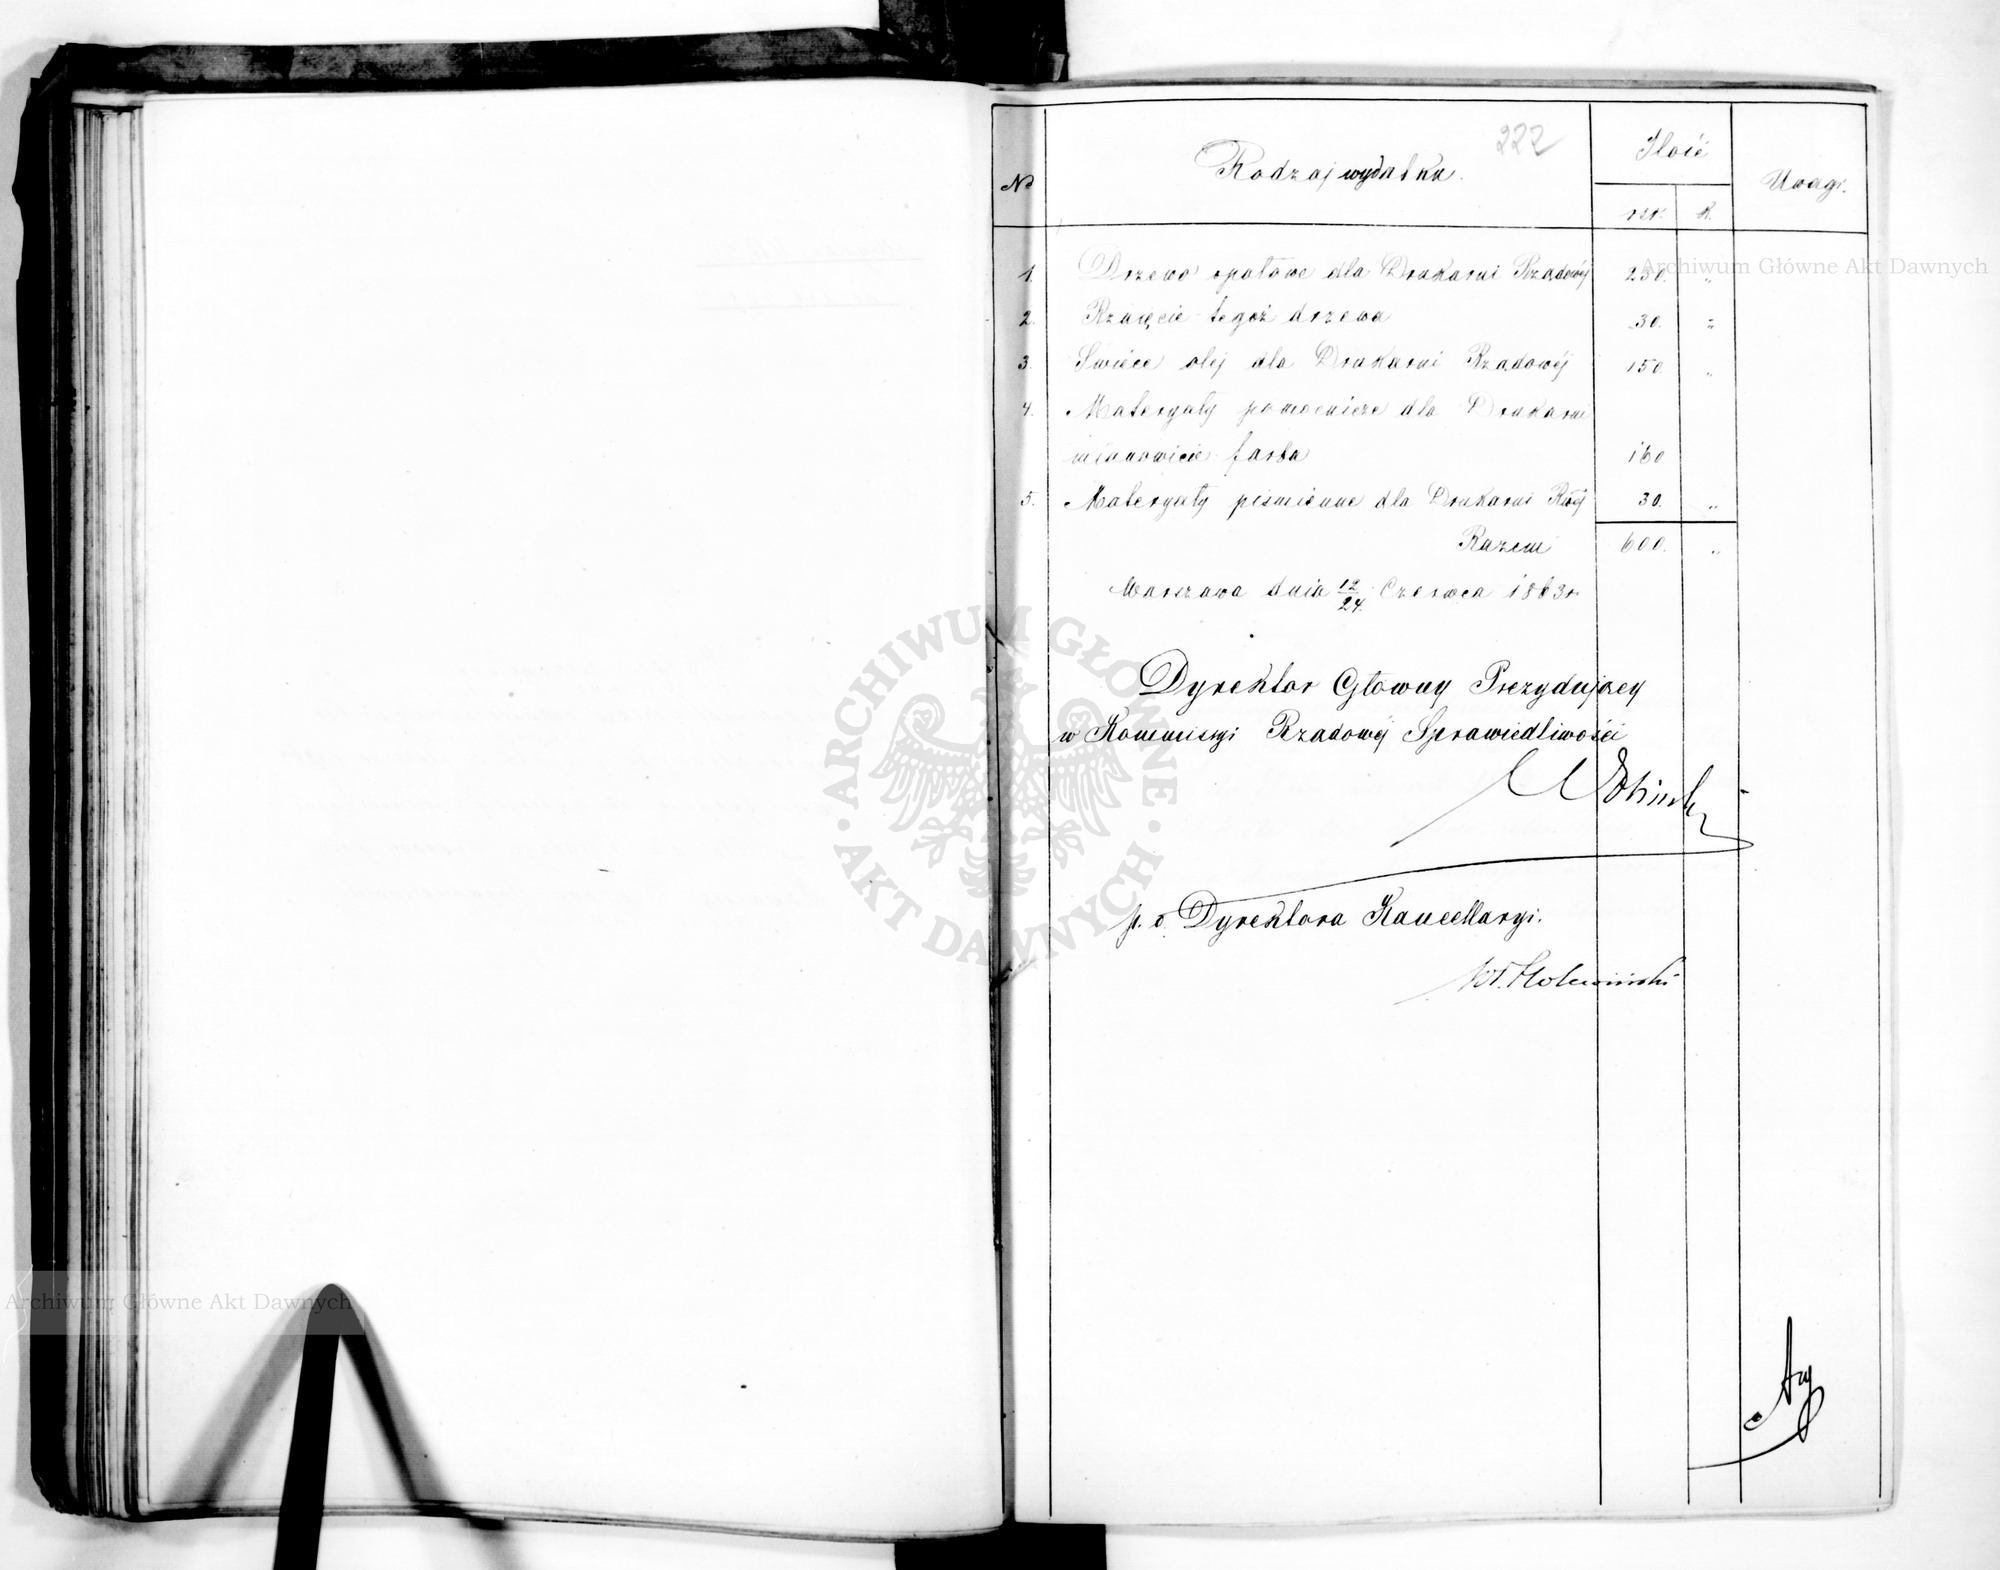 222
№ Rodzaj wydatku. Ilość Uwagi.
rsr. k.
1. Drzewo opałowe dla Drukarni Rządowéj 230. „
2. Rznięcie tegoż drzewa 30. „
3. Swiece olej dla Drukarni Rządowéj 150 „
4. Materyały pomocnicze dla Drukarni
mianowicie farba 160
5. Materyały piśmienne dla Drukarni Rwéj 30. „
Razem 600. „
Warszawa dnia 12/24 Czerwca 1863 r.
Dyrektor Głowny Prezydujący
w Kommissyi Rządowéj Sprawiedliwości
p. o. Dyrektora Kancellaryi.
Wł. Holewiński
Archiwum Główne Akt Dawnych
ARCHIWUM GŁÓWNE · AKT DAWNYCH ·
Archiwum Główne Akt Dawnych